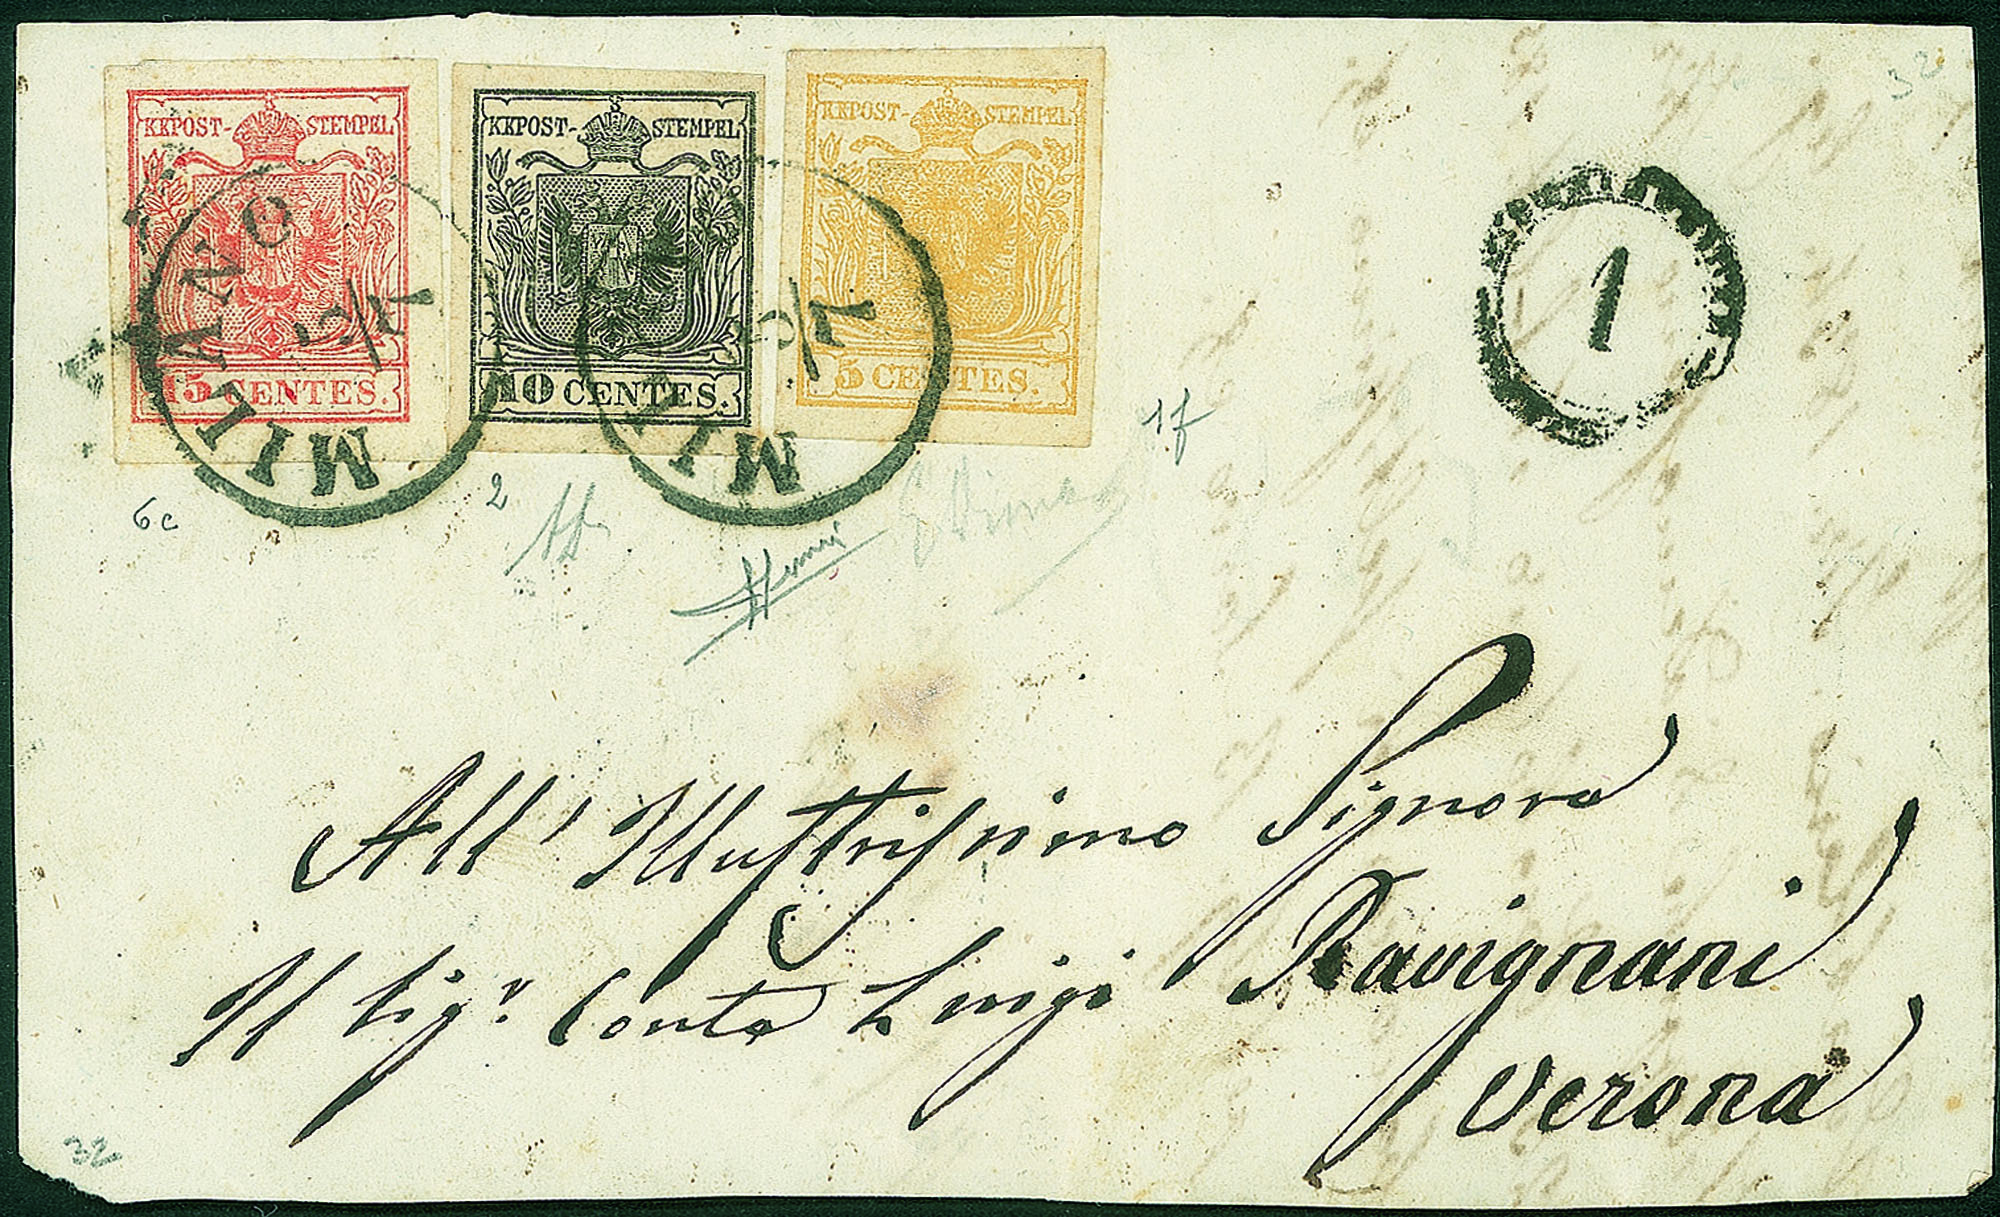 KKPOST-STEMPEL
15 CENTES.
KKPOST-STEMPEL
10 CENTES.
KKPOST-STEMPEL
5 CENTES.
MILANO
7/5
MIL
7/5
1
6c
2
1f
32
All' Illustrissimo Signora
Il Sig.r Conte Luigi Ravignani
Verona
32